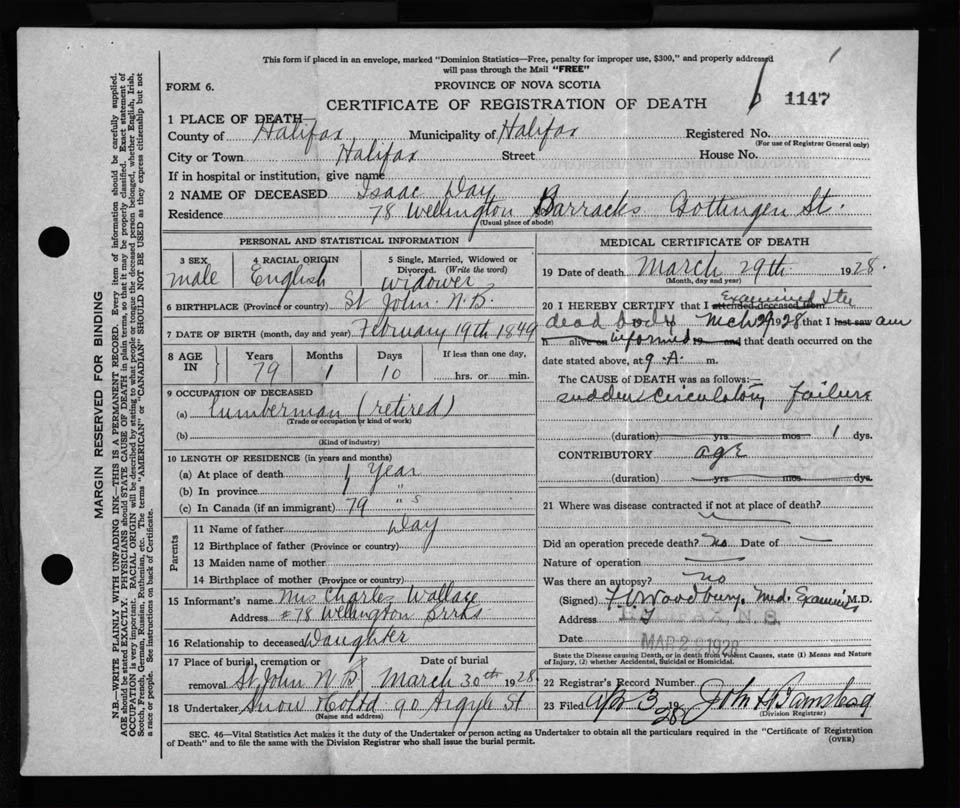 This form if placed in an envelope, marked "Dominion Statistics—Free, penalty for improper use, $300," and properly addressed
will pass through the Mail "FREE"
FORM 6.
PROVINCE OF NOVA SCOTIA
CERTIFICATE OF REGISTRATION OF DEATH
1147
1 PLACE OF DEATH—
County of Halifax Municipality of Halifax Registered No.
(For use of Registrar General only)
City or Town Halifax Street House No.
If in hospital or institution, give name
2 NAME OF DECEASED Isaac Day
Residence 78 Wellington Barracks Gottingen St.
(Usual place of abode)
PERSONAL AND STATISTICAL INFORMATION
3 SEX 4 RACIAL ORIGIN 5 Single, Married, Widowed or
Divorced. (Write the word)
male English widower
6 BIRTHPLACE (Province or country) St John N.B.
7 DATE OF BIRTH (month, day and year) February 19th 1849
8 AGE IN Years Months Days If less than one day,
79 1 10 hrs. or min.
9 OCCUPATION OF DECEASED
(a) Lumberman (retired)
(Trade or occupation or kind of work)
(b)
(Kind of industry)
10 LENGTH OF RESIDENCE (in years and months)
(a) At place of death 1 Year
(b) In province 1 "
(c) In Canada (if an immigrant) 79 " s
Parents
11 Name of father Day
12 Birthplace of father (Province or country)
13 Maiden name of mother
14 Birthplace of mother (Province or country)
15 Informant's name Mrs Charles Wallace
Address #78 Wellington Brrks
16 Relationship to deceased Daughter
17 Place of burial, cremation or Date of burial
removal St John N B March 30th 1928
18 Undertaker Snow & Co Ltd 90 Argyle St
(Name and address)
MEDICAL CERTIFICATE OF DEATH
19 Date of death March 29th 1928.
(Month, day and year)
20 I HEREBY CERTIFY that I attended deceased from Examined the
dead body Mch 29 1928 that I last saw am
h alive on informed is and that death occurred on the
date stated above, at 9 A. m.
The CAUSE of DEATH was as follows:—
Sudden Circulatory Failure
(duration) yrs mos 1 dys.
CONTRIBUTORY age
(duration) yrs mos dys.
21 Where was disease contracted if not at place of death?
Did an operation precede death? no Date of
Nature of operation
Was there an autopsy? no
(Signed) Woodbury, Med. Examiner M.D.
Address N.S.
Date MAR 1928
State the Disease causing Death, or in death from Violent Causes, state (1) Means and Nature
of Injury, (2) whether Accidental, Suicidal or Homicidal.
22 Registrar's Record Number
23 Filed Apr 3/28 John
(Division Registrar)
SEC. 46—Vital Statistics Act makes it the duty of the Undertaker or person acting as Undertaker to obtain all the particulars required in the "Certificate of Registration
of Death" and to file the same with the Division Registrar who shall issue the burial permit.
(OVER)
MARGIN RESERVED FOR BINDING
N.B.—WRITE PLAINLY WITH UNFADING INK—THIS IS A PERMANENT RECORD. Every item of information should be carefully supplied.
AGE should be stated EXACTLY. PHYSICIANS should STATE CAUSE OF DEATH in plain terms, so that it may be properly classified. Exact statement of
OCCUPATION is very important. RACIAL ORIGIN will be described by stating to what people or tongue the deceased person belonged, whether English, Irish,
Scotch, French, German, Russian, Ruthenian, etc. The terms "AMERICAN" or "CANADIAN" SHOULD NOT BE USED as they express citizenship but not
a race or people. See instructions on back of Certificate.